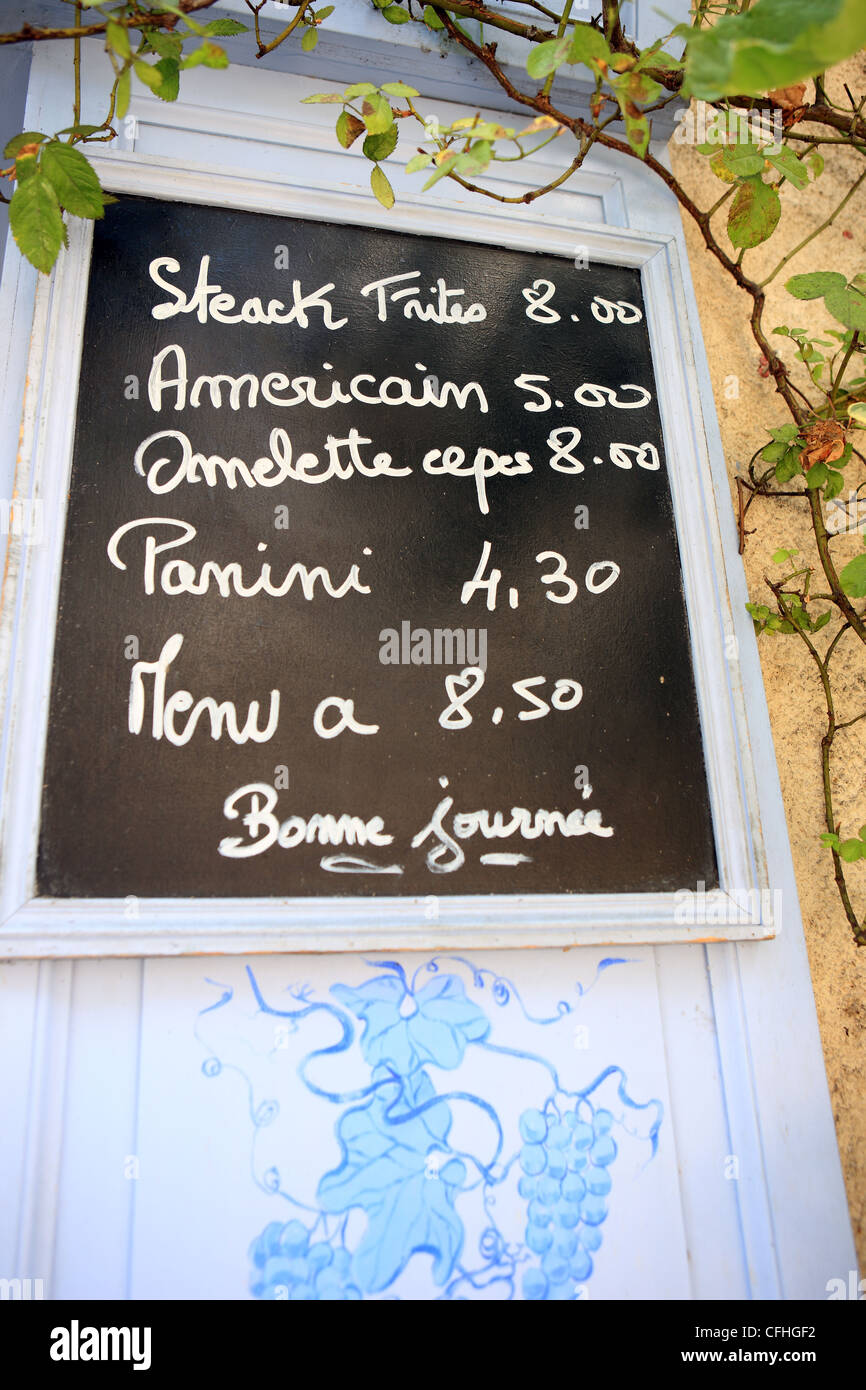 Steack Frites 8.00
Americain 5.00
Omelette cepes 8.00
Panini 4,30
Menu a 8,50
Bonne journée
alamy
Image ID: CFHGF2
www.alamy.com